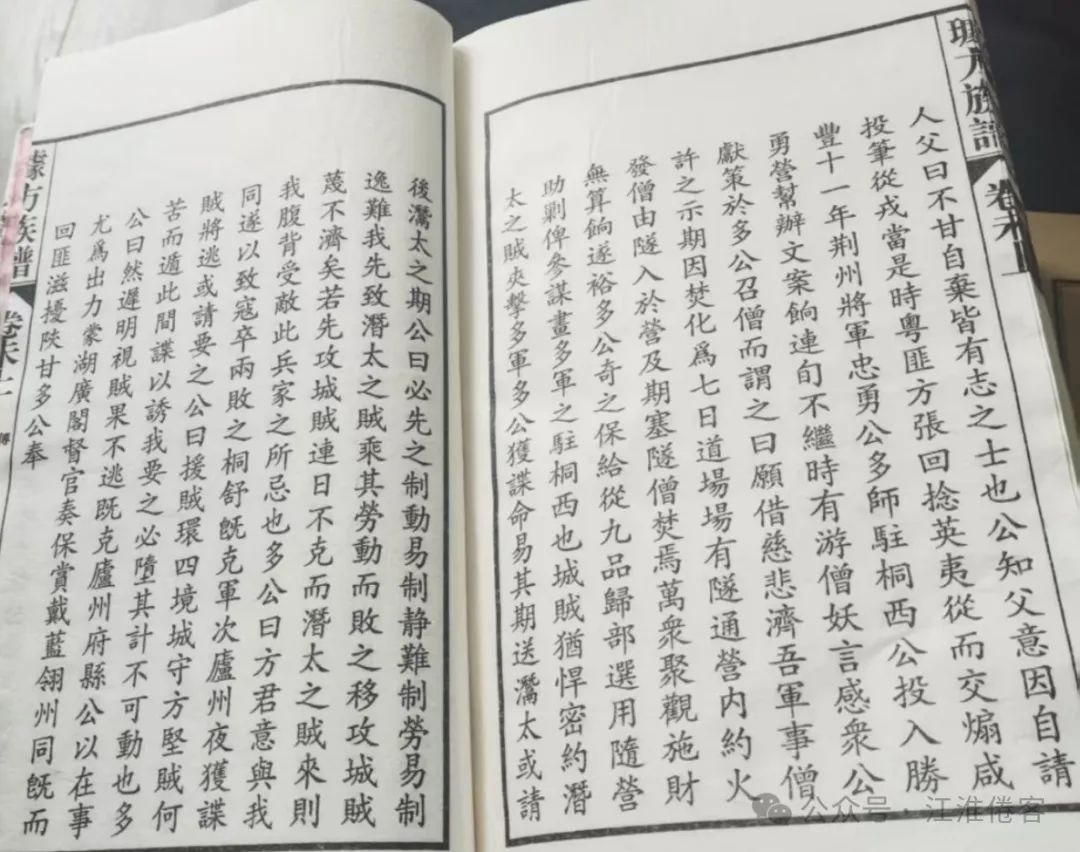 方族譜
卷末上
人父曰不甘自棄皆有志之士也公知父意因自請
投筆從戎當是時粵匪方張回捻英夷從而交煽咸
豐十一年荆州將軍忠勇公多師駐桐西公投入勝
勇營幫辦文案餉連旬不繼時有游僧妖言感衆公
獻策於多公召僧而謂之曰願借慈悲濟吾軍事僧
許之示期因焚化爲七日道場場有隧通營内約火
發僧由隧入於營及期塞隧僧焚焉萬衆聚觀施財
無算餉遂裕多公奇之保給從九品歸部選用隨營
助剿俾參謀畫多軍之駐桐西也城賊猶悍密約潛
太之賊夾擊多軍多公獲諜命易其期送灊太或請
後灊太之期公曰必先之制動易制静難制勞易制
逸難我先致潛太之賊乘其勞動而敗之移攻城賊
蔑不濟矣若先攻城賊連日不克而潛太之賊來則
我腹背受敵此兵家之所忌也多公曰方君意與我
同遂以致寇卒兩敗之桐舒既克軍次廬州夜獲諜
賊將逃或請要之公曰援賊環四境城守方堅賊何
苦而遁此間諜以誘我要之必墮其計不可動也多
公曰然遲明視賊果不逃既克廬州府縣公以在事
尤爲出力蒙湖廣閣督官奏保賞戴藍翎州同既而
回匪滋擾陜甘多公奉
方族譜
卷末上
公众号·江淮倦客